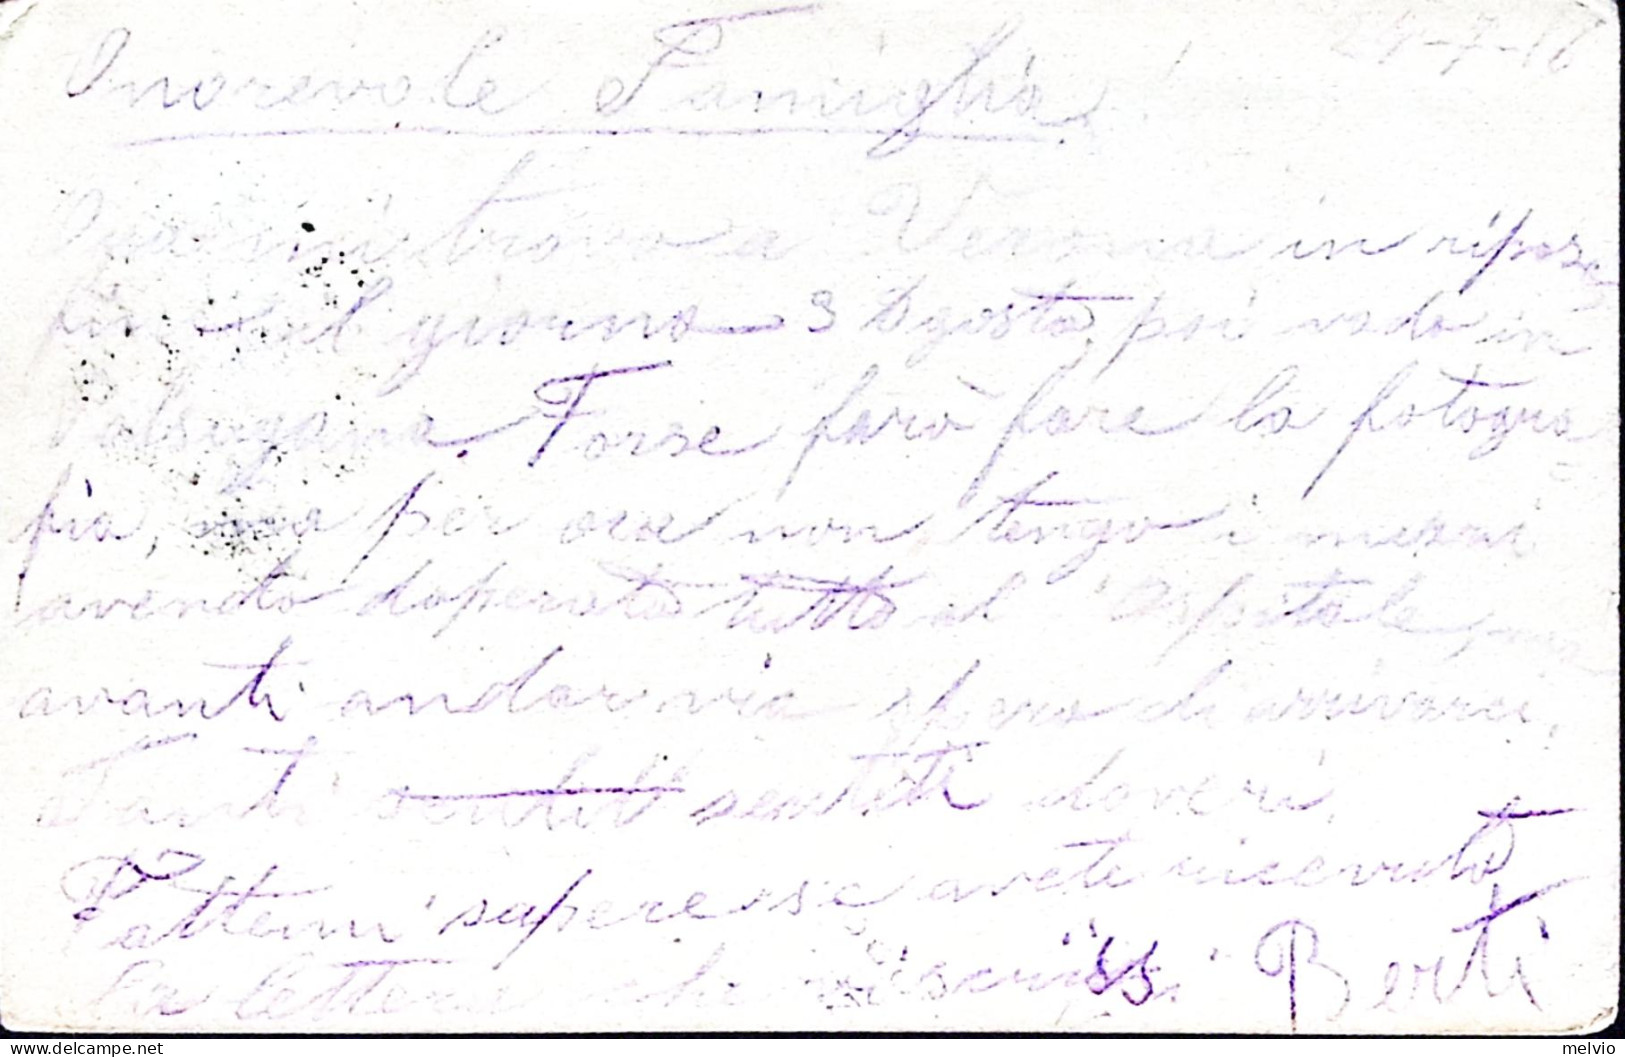 24-7-16
Onorevole Famiglia
Ora mi trovo a Verona in riposo
fino al giorno 3 Agosto poi vado in
Valsugana. Forse farò fare la fotogra
fia, ma per ora non tengo i mezzi
avendo doperato tutto al Ospitale
avanti andar via spero di arrivarci.
Tanti sentiti doveri.
Fattemi sapere se avete ricevuto
la lettera che vi scrissi Berti
melvio